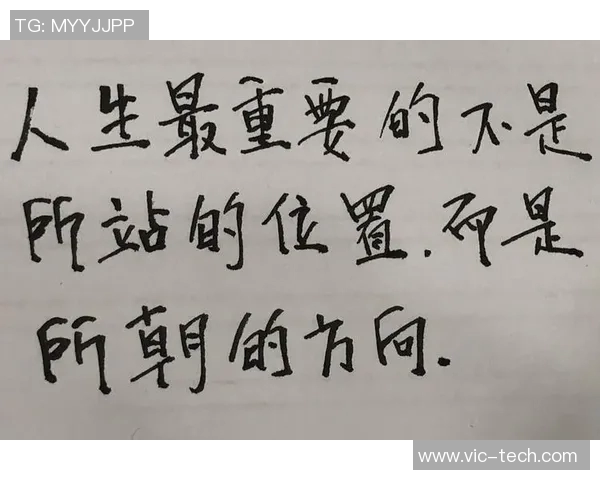 TG: MYYJJPP
人生最重要的不是
所站的位置.而是
所朝的方向.
www.vic-tech.com